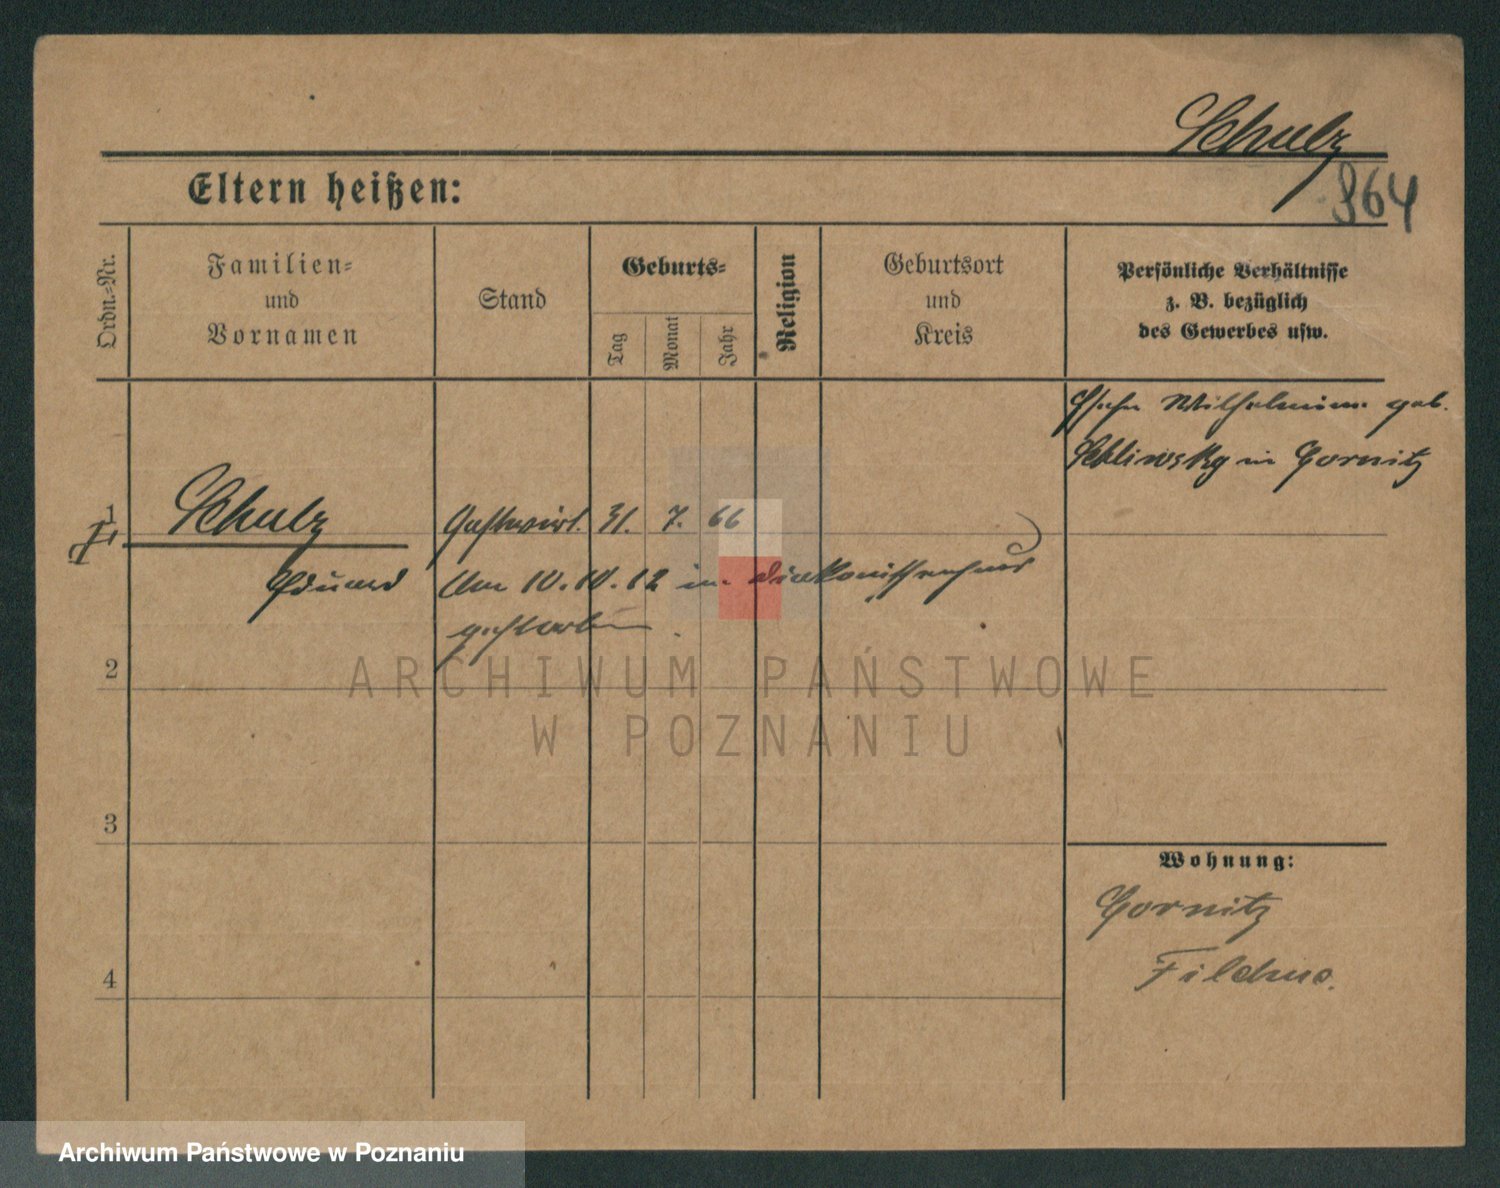 Schulz
864
Eltern heißen:
Ordn.-Nr.
Familien-
und
Vornamen
Stand
Geburts-
Tag
Monat
Jahr
Religion
Geburtsort
und
Kreis
Persönliche Verhältnisse
z. B. bezüglich
des Gewerbes usw.
Ehefr. Wilhelmine geb.
in Gornitz
1
Schulz
Gastwirt. 31. 7. 66
Eduard
Am 10.10.12 im Diakonissenhaus
gestorben.
2
3
4
Wohnung:
Gornitz
Filehne.
ARCHIWUM PAŃSTWOWE
W POZNANIU
Archiwum Państwowe w Poznaniu